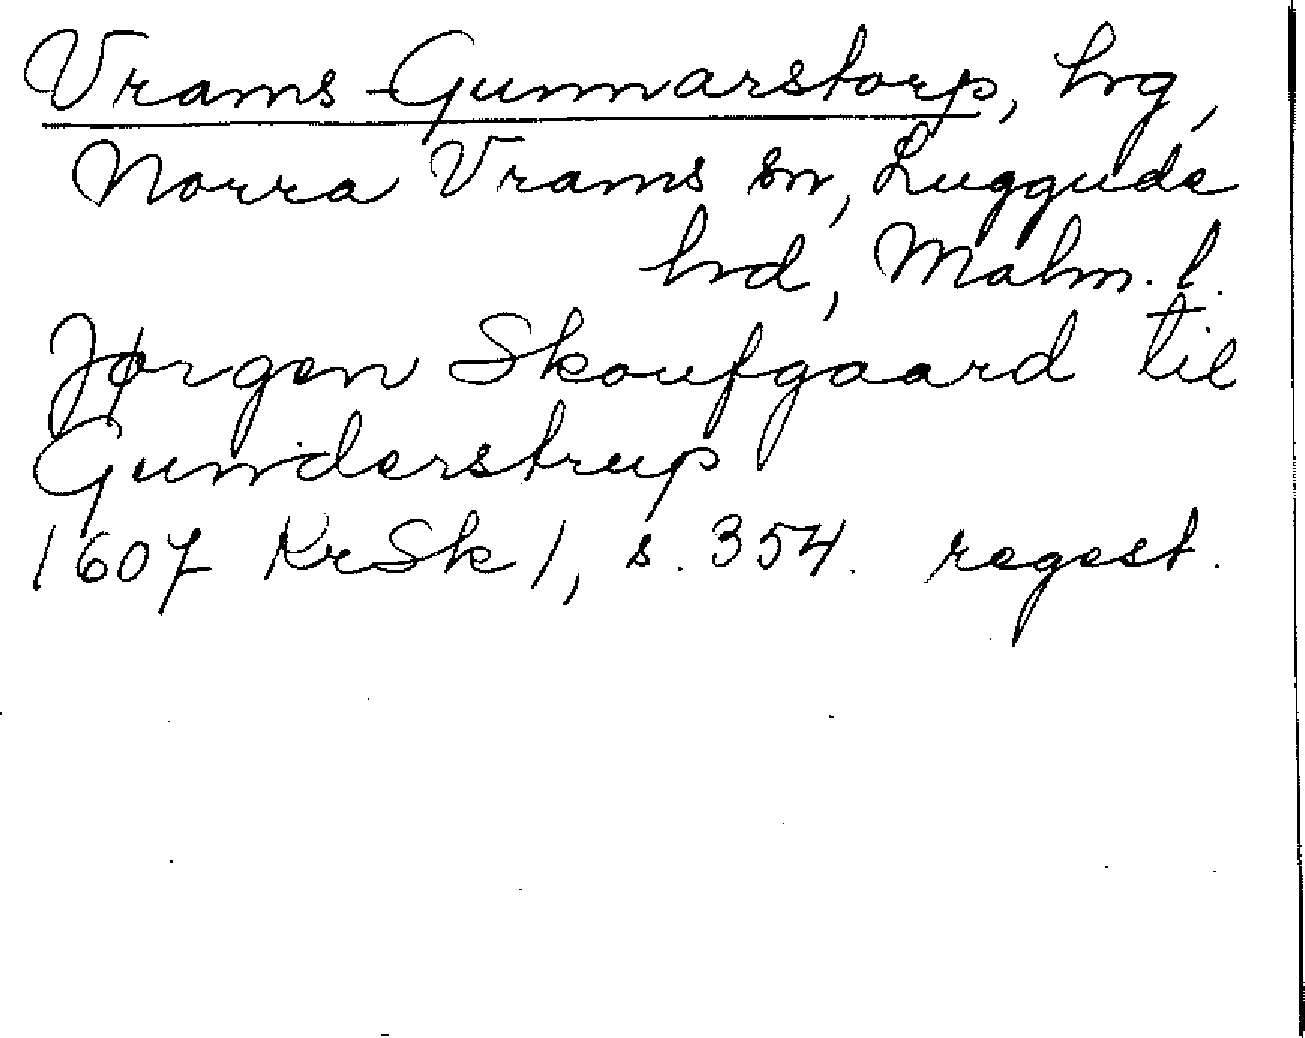 Vrams-Gunnarstorp, hrg,
Norra Vrams sn, Luggude
hrd, Malm. l.
Jørgen Skoufgaard til
Gunderstrup
1607 KrSk 1, s. 354. regest.